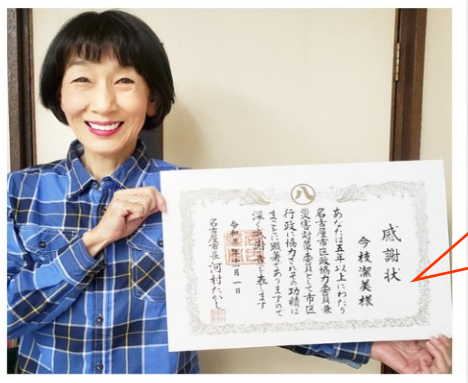 八
感謝状
今枝潔美様
あなたは五年以上にわたり
名古屋市区政協力委員兼
災害対策委員として市区
行政に協力されその功績は
まことに顕著でありますので
深く感謝の意を表します
令和三年四月一日
名古屋市長 河村たかし